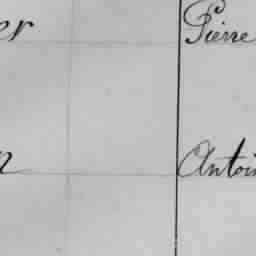 er Pierre
n Antoi